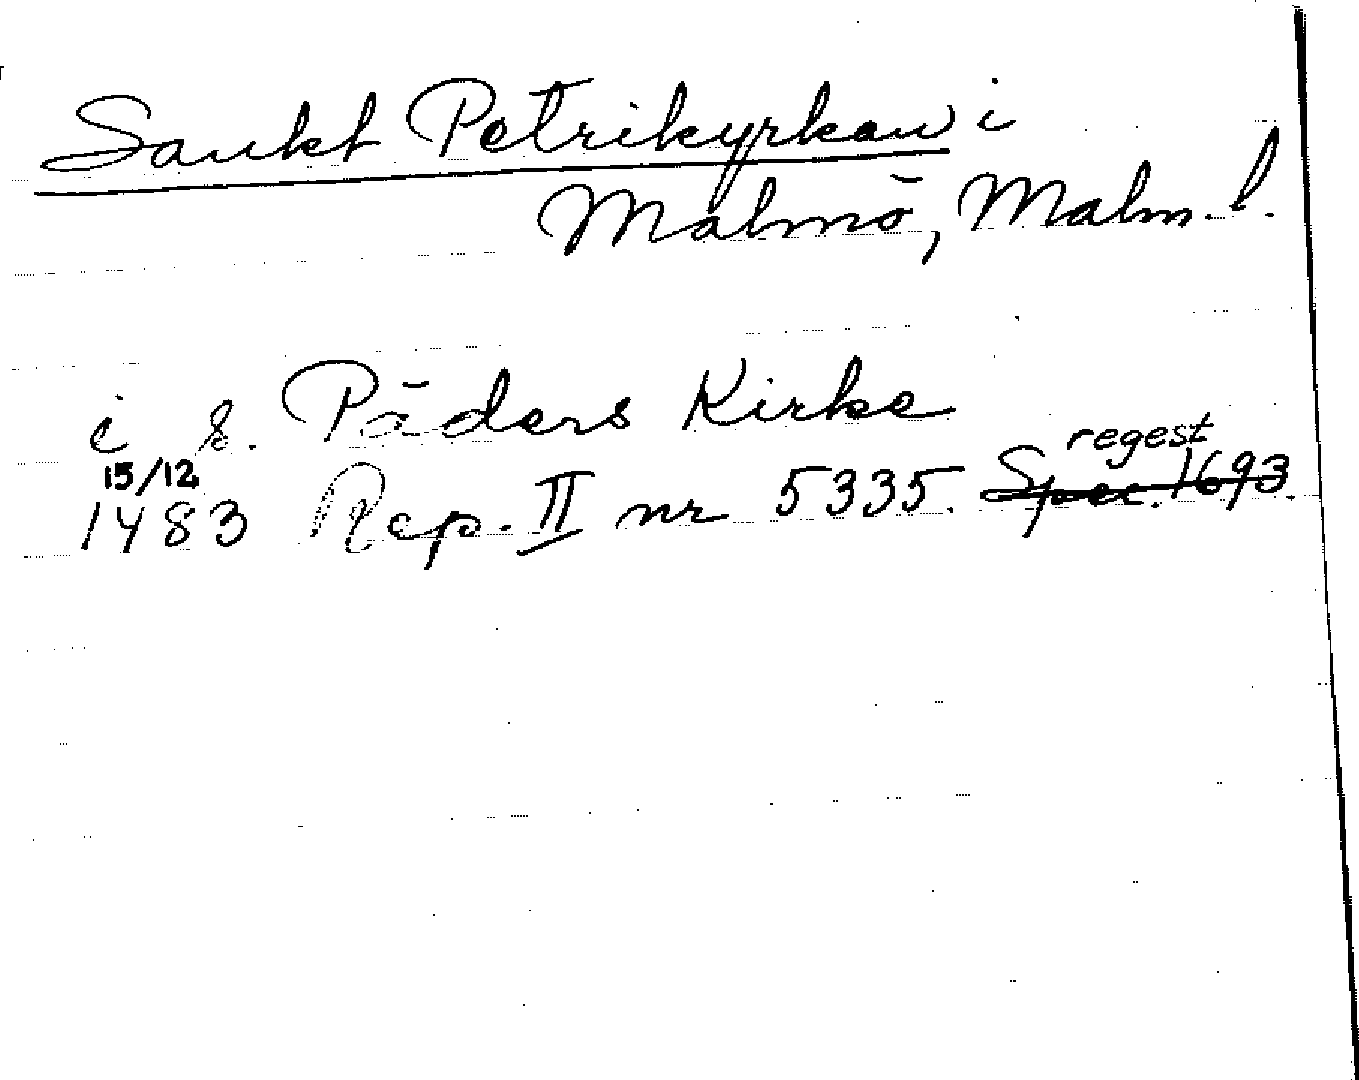 Sankt Petrikyrkan i
Malmö, Malm. l.
i s. Päders Kirke
15/12
1483 Rep. II nr 5335. Spec. 1693.
regest